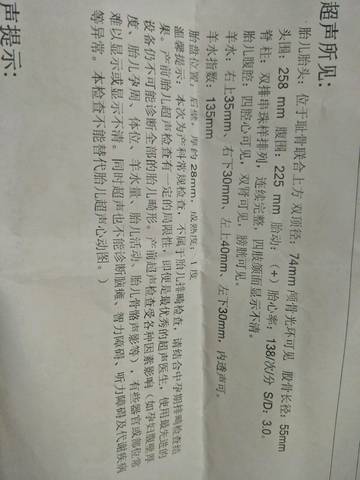 超声所见：
胎儿胎头：位于耻骨联合上方 双顶径：74mm 颅骨光环可见 股骨长径：55mm
头围：258 mm 腹围：225 mm 胎动：（+）胎心率：138/次/分 S/D：3.0。
脊柱：双排串珠样排列，连续完整，四肢颜面显示不清。
胎儿腹腔：四腔心可见，双肾可见，膀胱可见。
羊水：右上35mm、右下30mm、左上40mm、左下30mm，内透声可。
羊水指数：135mm
胎盘位置：后壁，厚约28mm，成熟度：Ⅰ度
温馨提示：本次为产科常规检查，不属于胎儿排畸检查，请结合中孕期排畸检查结
果。产前胎儿超声检查有一定的局限性，即使是最优秀的超声医生，使用最先进的
设备仍不可能诊断全部的胎儿畸形。产前超声检查受各种因素影响（如孕妇腹壁厚
度、胎儿孕周、体位、羊水量、胎儿活动、胎儿骨骼声影等），有些器官或部位常
难以显示或显示不清。同时超声也不能诊断脑瘫、智力障碍、听力障碍及代谢疾病
等异常。本检查不能替代胎儿超声心动图。）
声提示：